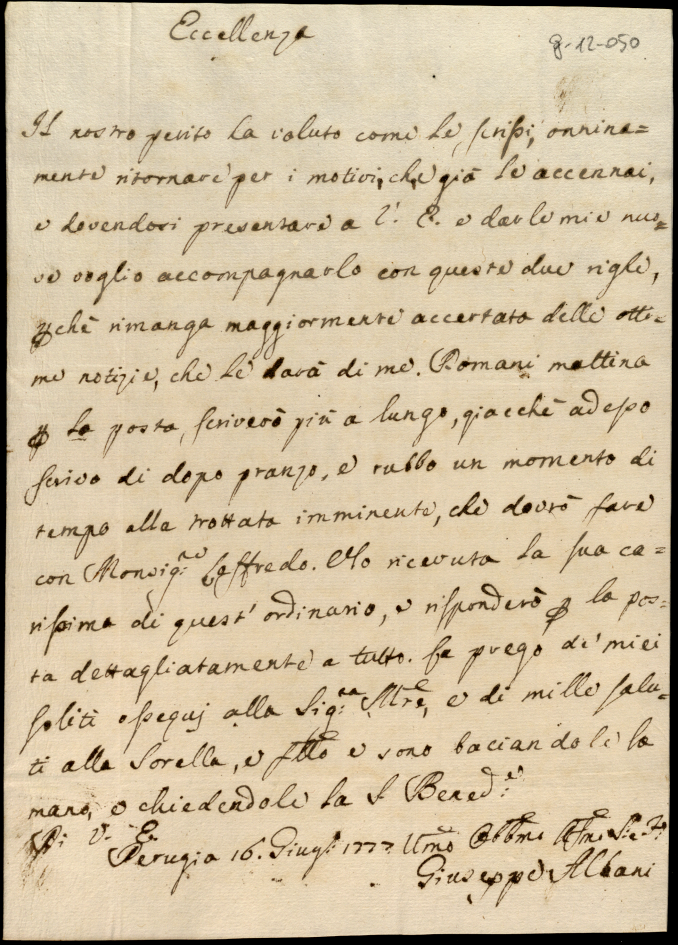 Eccellenza
g-12-050
Il nostro perito ha voluto come Le scrissi, onnina=
mente ritornare per i motivi, che già Le accennai,
e dovendosi presentare a V. E. e darle mie nuo=
ve voglio accompagnarlo con queste due righe,
pchè rimanga maggiormente accertata delle otti=
me notizie, che Le darà di me. Domani mattina
p la posta, scriverò più a lungo, giacchè adesso
scrivo di dopo pranzo, e rubbo un momento di
tempo alla trottata imminente, che dovrò fare
con Monsig.re Loffredo. Ho ricevuta la sua ca=
rissima di quest' ordinario, e risponderò p la pos=
ta dettagliatamente a tutto. La prego de' miei
soliti ossequj alla Sig.ra Mre, e di mille salu=
ti alla Sorella, e Fllo e sono baciandole la
mano, e chiedendole la S. Bened.e
Di V. E.
Perugia 16. Giug. 1777 Umo Obbmo Affmo S.e F.
Giuseppe Albani